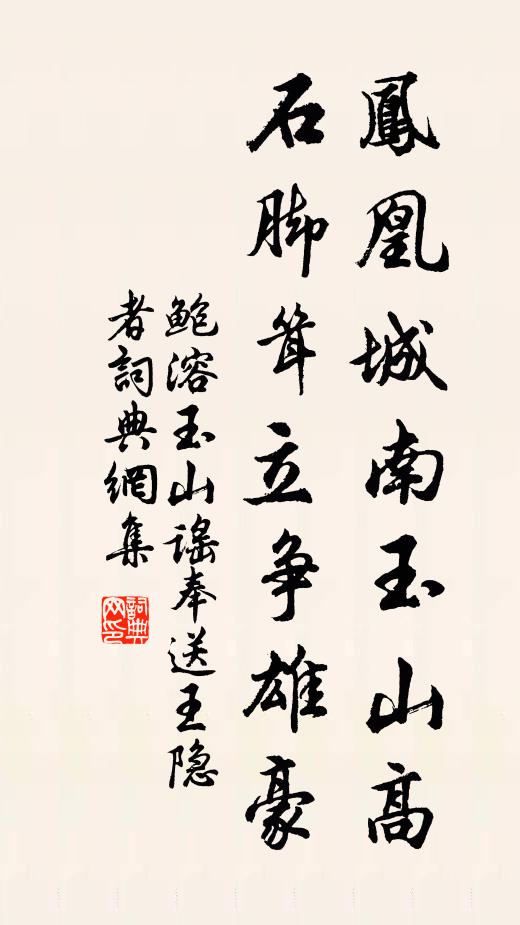 鳳凰城南玉山高
石脚耸立争雄豪
鲍溶玉山谣奉送王隐
者詞典網集
詞典网印